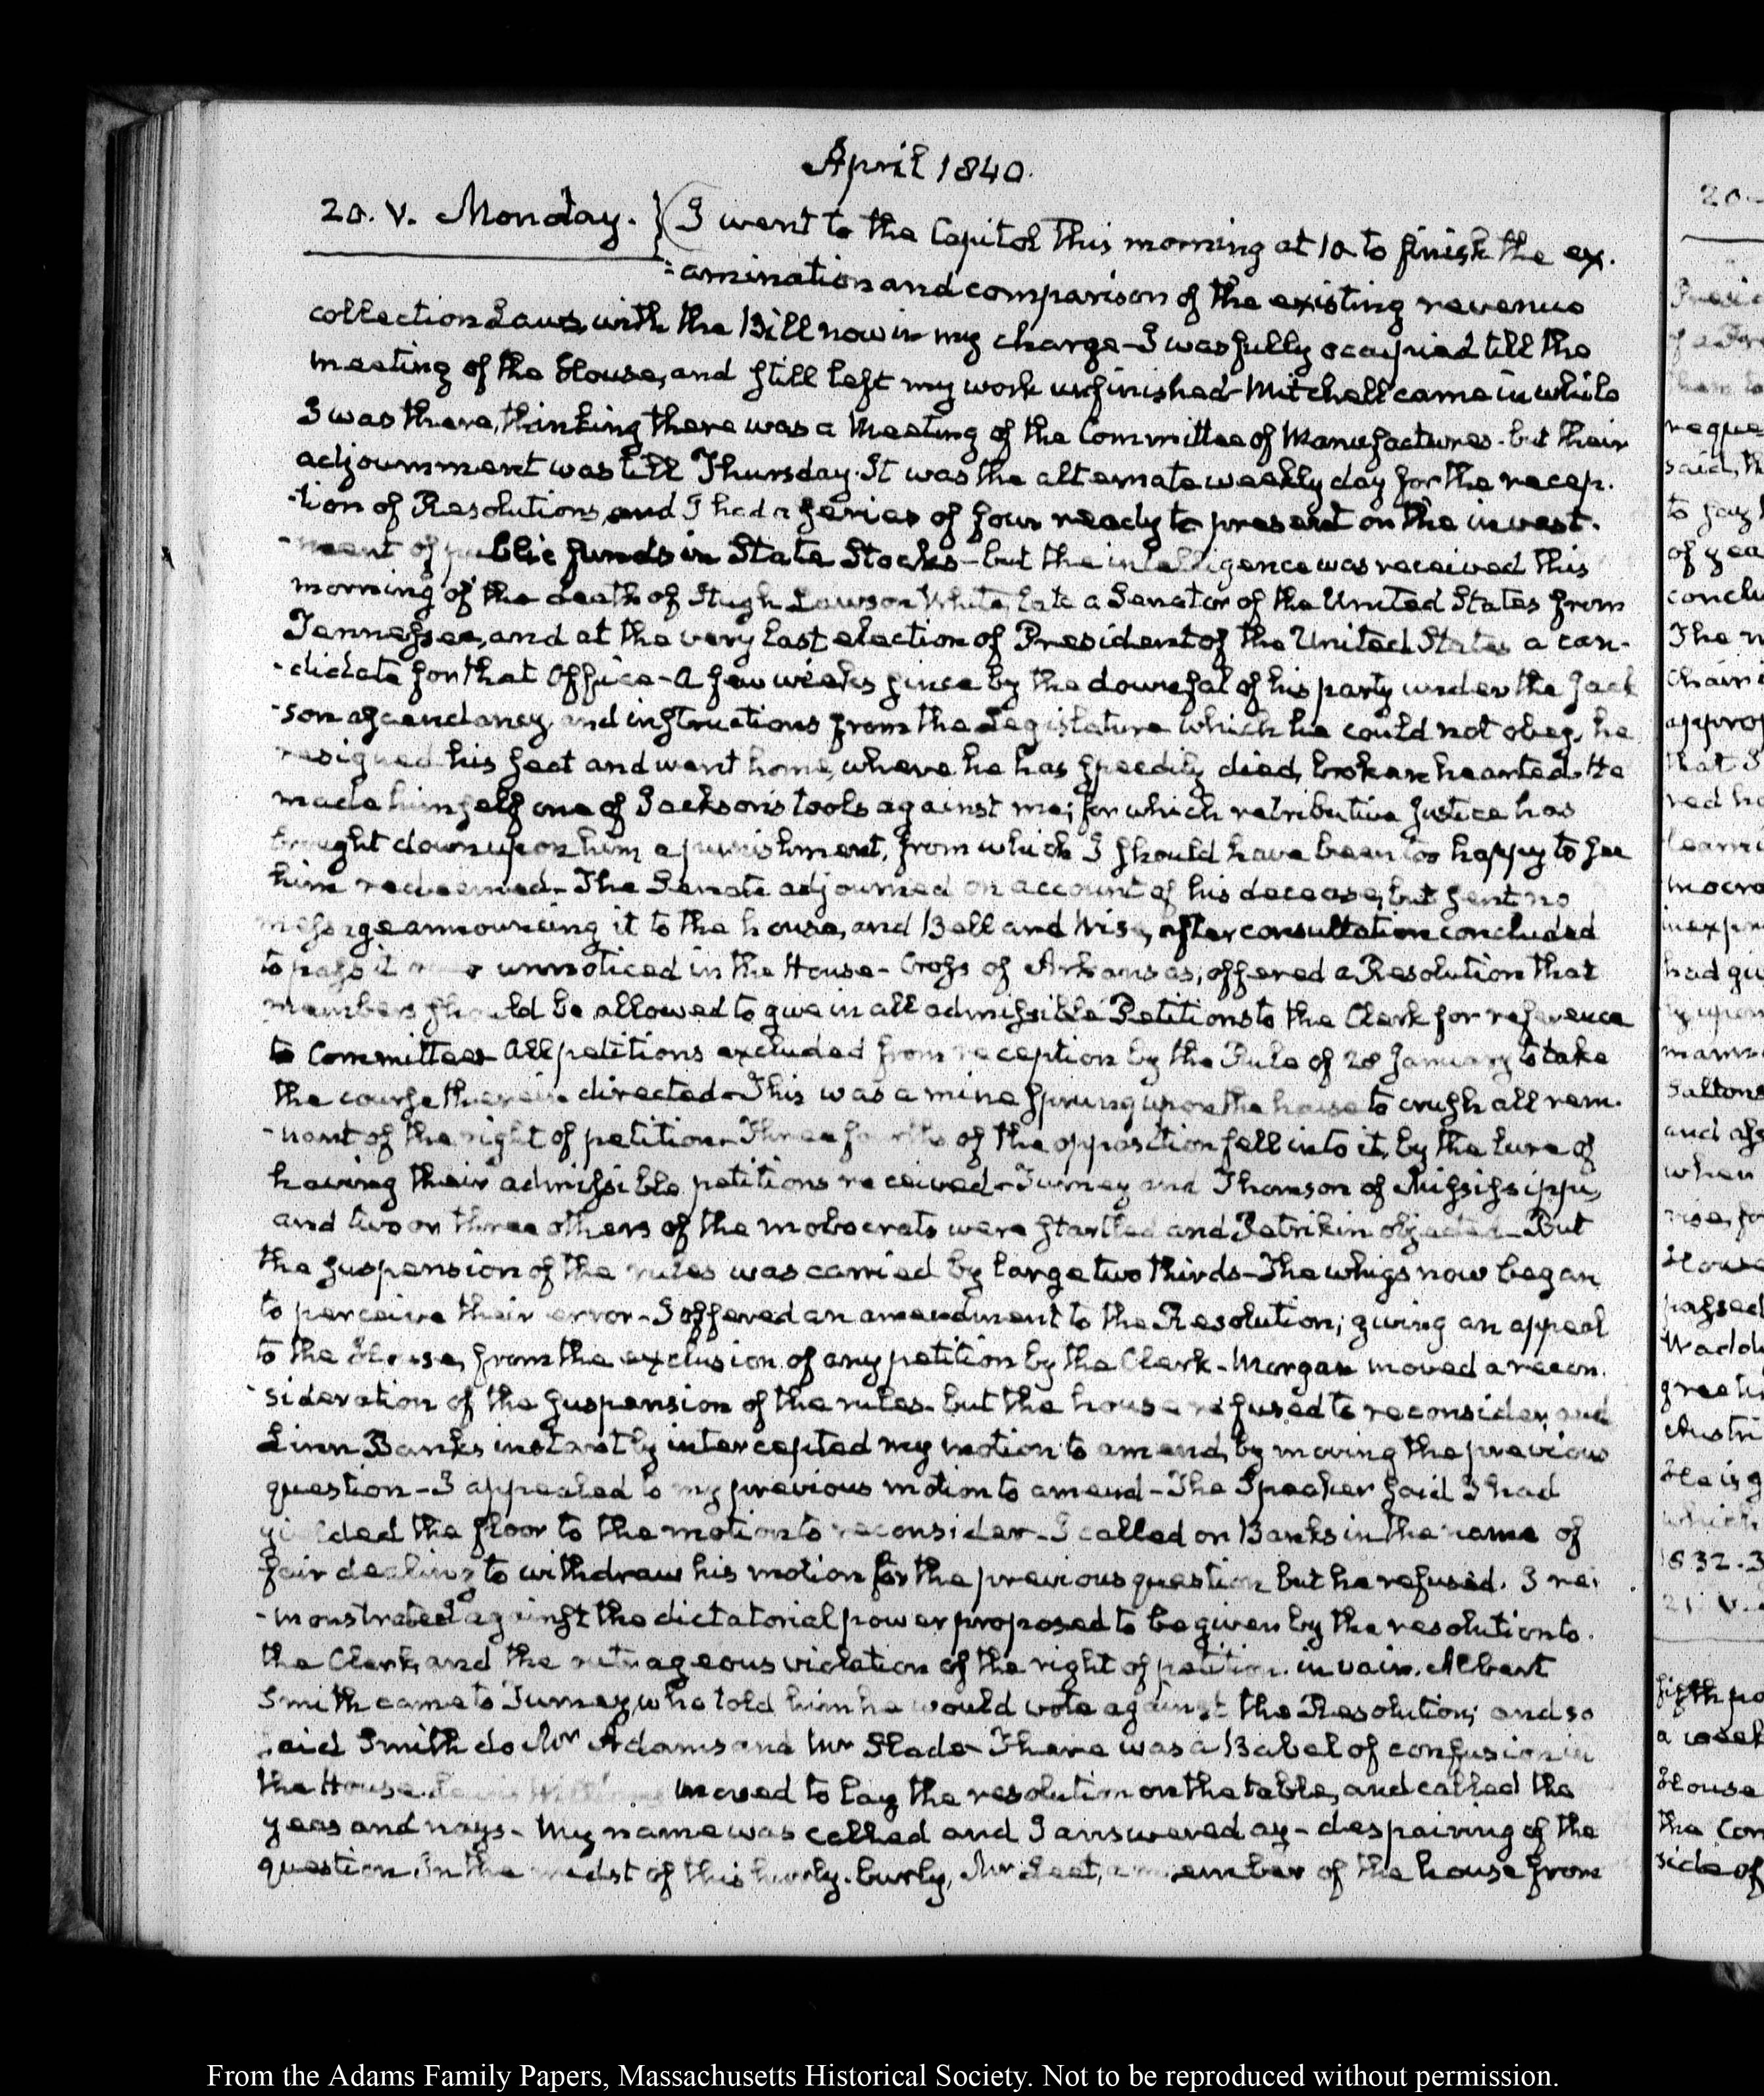 April 1840.
20. V. Monday. } I went to the Capitol this morning at 10 to finish the ex-
-amination and comparison of the existing revenue
collection Laws, with the Bill now in my charge - I was fully occupied till the
meeting of the House, and still left my work unfinished - Mitchell came in while
I was there, thinking there was a Meeting of the Committee of Manufactures - but their
adjournment was till Thursday. It was the alternate weekly day for the recep-
-tion of Resolutions, and I had a series of four ready to present on the invest-
-ment of public funds in State Stocks - but the intelligence was received this
morning of the death of Hugh Lawson White, late a Senator of the United States from
Tennessee, and at the very last election of President of the United States a can-
-didate for that Office - A few weeks since by the downfal of his party under the Jack
-son ascendancy, and instructions from the Legislature which he could not obey, he
resigned his seat and went home, where he has speedily died, broken hearted. He
made himself one of Jackson's tools against me; for which retributive justice has
brought down upon him a punishment, from which I should have been too happy to see
him redeemed - The Senate adjourned on account of his decease, but sent no
message announcing it to the house, and Bell and Wise, after consultation concluded
to pass it over unnoticed in the House - Cross of Arkansas, offered a Resolution that
members should be allowed to give in all admissible Petitions to the Clerk for reference
to Committees All petitions excluded from reception by the Rule of 28 January to take
the course therein directed - This was a mine sprung upon the house to crush all rem-
-nant of the right of petition - Three fourths of the opposition fell into it, by the lure of
having their admissible petitions received - Turney and Thomson of Mississippi,
and two or three others of the mobocrats were startled and Petrikin objected - But
the suspension of the rules was carried by large two thirds - The whigs now began
to perceive their error - I offered an amendment to the Resolution; giving an appeal
to the House, from the exclusion of any petition by the Clerk - Morgan moved a recon-
-sideration of the suspension of the rules - but the house refused to reconsider, and
Linn Banks instantly intercepted my motion to amend, by moving the previous
question - I appealed to my previous motion to amend - The Speaker said I had
yielded the floor to the motion to reconsider - I called on Banks in the name of
fair dealing to withdraw his motion for the previous question but he refused. I re-
-monstrated against the dictatorial power proposed to be given by the resolution to
the Clerk, and the outrageous violation of the right of petition. in vain. Albert
Smith came to Turney, who told him he would vote against the Resolution; and so
said Smith do Mr Adams and Mr Slade - There was a Babel of confusion in
the House. Lewis Williams moved to lay the resolution on the table, and called the
yeas and nays - My name was called and I answered ay - despairing of the
question. In the midst of this hurly-burly, Mr Leet, a member of the house from
From the Adams Family Papers, Massachusetts Historical Society. Not to be reproduced without permission.